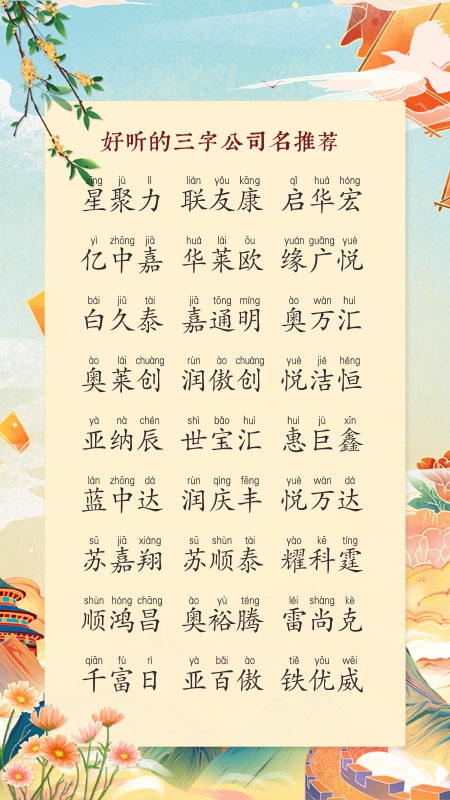 好听的三字公司名推荐
xīng jù lì lián yǒu kāng qǐ huá hóng
星聚力 联友康 启华宏
yì zhōng jiā huá lái ōu yuán guǎng yuè
亿中嘉 华莱欧 缘广悦
bái jiǔ tài jiā tōng míng ào wàn huì
白久泰 嘉通明 奥万汇
ào lái chuàng rùn ào chuàng yuè jié héng
奥莱创 润傲创 悦洁恒
yà nà chén shì bǎo huì huì jù xīn
亚纳辰 世宝汇 惠巨鑫
lán zhōng dá rùn qìng fēng yuè wàn dá
蓝中达 润庆丰 悦万达
sū jiā xiáng sū shùn tài yào kē tíng
苏嘉翔 苏顺泰 耀科霆
shùn hóng chāng ào yù téng léi shàng kè
顺鸿昌 奥裕腾 雷尚克
qiān fù rì yà bǎi ào tiě yōu wēi
千富日 亚百傲 铁优威